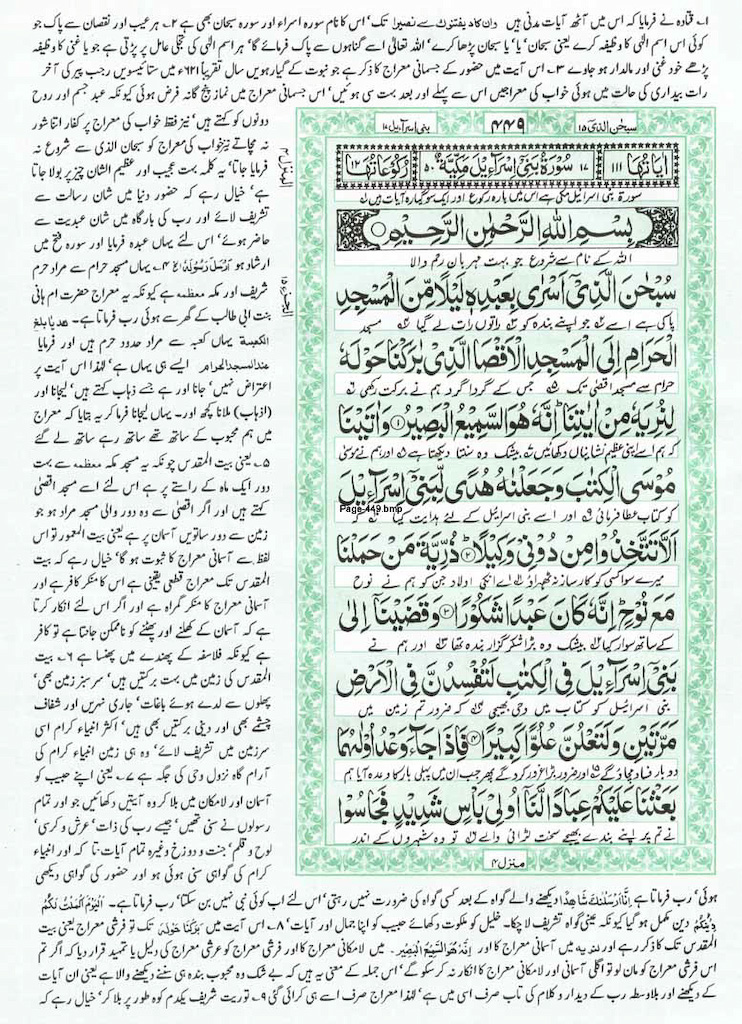 ۱ قتادہ نے فرمایا کہ اس میں آٹھ آیات مدنی ہیں وان کادو لیفتنونک سے نصیرا تک' اس کا نام سورہ اسراء اور سورہ سبحان بھی ہے ۲ ہر عیب اور نقصان سے پاک جو
کوئی اس اسم الٰہی کا وظیفہ کرے یعنی سبحان' یا' یا سبحان پڑھا کرے' اللہ تعالٰی اسے گناہوں سے پاک فرمائے گا' ہر اسم الٰہی کی تجلی عامل پر پڑتی ہے جو یا غنی کا وظیفہ
پڑھے خود غنی اور مالدار ہو جاوے ۳ اس آیت میں حضور کے جسمانی معراج کا ذکر ہے جو نبوت کے گیارہویں سال تقریباً ۶۲۱ء میں ستائیسویں رجب پیر کی آخر
رات بیداری کی حالت میں ہوئی خواب کی معراجیں اس سے پہلے اور بعد بہت سی ہوئیں' اس جسمانی معراج میں نماز پنج گانہ فرض ہوئی کیونکہ عبد جسم اور روح
سبحٰن الذی ۱۵
۴۴۹
بنی اسرآءیل ۱۷
اٰیاتہا ۱۱۱
۱۷ سُوْرَۃُ بَنِیْۤ اِسْرَآءِیْلَ مَکِّیَّۃٌ ۵۰
رکوعاتہا ۱۲
سورۃ بنی اسرائیل مکی ہے اس میں بارہ رکوع اور ایک سو گیارہ آیات ہیں
بِسْمِ اللّٰهِ الرَّحْمٰنِ الرَّحِیْمِ
اللہ کے نام سے شروع جو بہت مہربان رحم والا
سُبْحٰنَ الَّذِیْۤ اَسْرٰی بِعَبْدِهٖ لَیْلًا مِّنَ الْمَسْجِدِ
پاکی ہے اسے جو اپنے بندہ کو راتوں رات لے گیا مسجد
الْحَرَامِ اِلَی الْمَسْجِدِ الْاَقْصَا الَّذِیْ بٰرَکْنَا حَوْلَهٗ
حرام سے مسجد اقصیٰ تک جس کے گردا گرد ہم نے برکت رکھی
لِنُرِیَهٗ مِنْ اٰیٰتِنَا ؕ اِنَّهٗ هُوَ السَّمِیْعُ الْبَصِیْرُ ۱ وَ اٰتَیْنَا
کہ ہم اسے اپنی عظیم نشانیاں دکھائیں بیشک وہ سنتا دیکھتا ہے اور ہم نے موسیٰ
مُوْسَی الْکِتٰبَ وَ جَعَلْنٰهُ هُدًی لِّبَنِیْۤ اِسْرَآءِیْلَ
کو کتاب عطا فرمائی اور اسے بنی اسرائیل کے لئے ہدایت کیا کہ
Page-449.bmp
اَلَّا تَتَّخِذُوْا مِنْ دُوْنِیْ وَکِیْلًا ۲ ذُرِّیَّةَ مَنْ حَمَلْنَا
میرے سوا کسی کو کارساز نہ ٹھہراؤ اے انکی اولاد جن کو ہم نے نوح
مَعَ نُوْحٍ ؕ اِنَّهٗ کَانَ عَبْدًا شَکُوْرًا ۳ وَ قَضَیْنَاۤ اِلٰی
کے ساتھ سوار کیا بیشک وہ بڑا شکر گزار بندہ تھا اور ہم نے
بَنِیْۤ اِسْرَآءِیْلَ فِی الْکِتٰبِ لَتُفْسِدُنَّ فِی الْاَرْضِ
بنی اسرائیل کو کتاب میں وحی بھیجی کہ ضرور تم زمین میں
مَرَّتَیْنِ وَ لَتَعْلُنَّ عُلُوًّا کَبِیْرًا ۴ فَاِذَا جَآءَ وَعْدُ اُوْلٰىهُمَا
دو بار فساد مچاؤ گے اور ضرور بڑا غرور کرو گے پھر جب ان میں پہلی بار کا وعدہ آیا ہم
بَعَثْنَا عَلَیْکُمْ عِبَادًا لَّنَاۤ اُولِیْ بَاْسٍ شَدِیْدٍ فَجَاسُوْا
نے تم پر اپنے بندے بھیجے سخت لڑائی والے تو وہ شہروں کے اندر
منزل ۴
المنزل ۴
الجزء ۱۵
دونوں کو کہتے ہیں' نیز فقط خواب کی معراج پر کفار اتنا شور
نہ مچاتے نیز خواب کی معراج کو سبحان الذی سے شروع نہ
فرمایا جاتا' یہ کلمہ بہت عجیب اور عظیم الشان چیز پر بولا جاتا
ہے' خیال رہے کہ حضور دنیا میں شان رسالت سے
تشریف لائے اور رب کی بارگاہ میں شان عبدیت سے
حاضر ہوئے' اس لئے یہاں عبدہ فرمایا اور سورہ فتح میں
ارشاد ہو اَرْسَلَ رَسُوْلَہٗ ۴ یہاں مسجد حرام سے مراد حرم
شریف اور مکہ معظمہ ہے کیونکہ یہ معراج حضرت ام ہانی
بنت ابی طالب کے گھر سے ہوئی رب فرماتا ہے۔ ھدیا بلغ
الکعبۃ یہاں کعبہ سے مراد حدود حرم ہیں اور فرمایا
عندالمسجدالحرام ایسے ہی یہاں ہے' لہٰذا اس آیت پر
اعتراض نہیں' جانا اور ہے جسے ذہاب کہتے ہیں' لیجانا اور
(اذہاب) ملانا کچھ اور۔ یہاں لیجانا فرما کر یہ بتایا کہ معراج
میں ہم محبوب کے ساتھ تھے ساتھ رہے ساتھ لے گئے
۵ یعنی بیت المقدس چونکہ یہ مسجد مکہ معظمہ سے بہت
دور ایک ماہ کے راستے پر ہے اس لئے اسے مسجد اقصیٰ
کہتے ہیں اور اگر اقصیٰ سے وہ دور والی مسجد مراد ہو جو
زمین سے دور ساتویں آسمان پر ہے یعنی بیت المعمور تو اس
لفظ سے آسمانی معراج کا ثبوت ہو گا' خیال رہے کہ بیت
المقدس تک معراج قطعی یقینی ہے اس کا منکر کافر ہے اور
آسمانی معراج کا منکر گمراہ ہے اور اگر اس لئے انکار کرتا
ہے کہ آسمان کے کھلنے اور پھٹنے کو ناممکن جانتا ہے تو کافر
ہے کیونکہ فلاسفہ کے پھندے میں پھنسا ہے ۶ بیت
المقدس کی زمین میں بہت برکتیں ہیں' سرسبز زمین بھی'
پھلوں سے لدے ہوئے باغات' جاری نہریں اور شفاف
چشمے بھی اور دینی برکتیں بھی ہیں' اکثر انبیاء کرام اسی
سرزمین میں تشریف لائے' وہ ہی زمین انبیاء کرام کی
آرام گاہ نزول وحی کی جگہ ہے ۷ یعنی اپنے حبیب کو
آسمان اور لامکان میں بلا کر وہ آیتیں دکھائیں جو اور تمام
رسولوں نے سنی تھیں' جیسے رب کی ذات' عرش و کرسی'
لوح و قلم' جنت و دوزخ وغیرہ تمام آیات تا کہ اور انبیاء
کرام کی گواہی سنی ہوئی ہو اور حضور کی گواہی دیکھی
ہوئی' رب فرماتا ہے اِنَّاۤ اَرْسَلْنٰکَ شَاھِدًا دیکھنے والے گواہ کے بعد کسی گواہ کی ضرورت نہیں رہتی' اس لئے اب کوئی نبی نہیں بن سکتا' رب فرماتا ہے۔ اَلْیَوْمَ اَکْمَلْتُ لَکُمْ
دِیْنَکُمْ دین مکمل ہو گیا کیونکہ عینی گواہ تشریف لا چکا۔ خلیل کو ملکوت دکھائے حبیب کو اپنا جمال اور آیات' ۸ اس آیت میں بٰرَکْنَا حَوْلَہٗ تک تو فرشی معراج یعنی بیت
المقدس تک کا ذکر ہے اور لنریہ میں آسمانی معراج کا اور اِنَّہٗ ھُوَ السَّمِیْعُ الْبَصِیْرُ۔ میں لامکانی معراج کا اور فرشی معراج کو عرشی معراج کی دلیل یا تمہید قرار دیا کہ اگر تم
اس فرشی معراج کو مان لو تو اگلی آسمانی اور لامکانی معراج کا انکار نہ کر سکو گے' اس جملہ کے معنی یہ ہیں کہ بے شک وہ محبوب بندہ ہی سننے دیکھنے والا ہے یعنی ان آیات
کے دیکھنے اور بلاوسطہ رب کے دیدار و کلام کی تاب صرف اسی میں ہے' لہٰذا معراج صرف اسے ہی کرائی گئی ۹ توریت شریف یکدم کوہ طور پر بلا کر' خیال رہے کہ